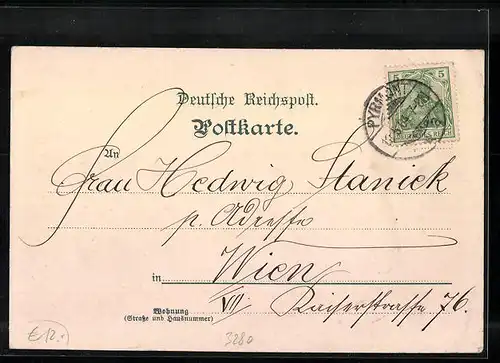 Deutsche Reichspost.
Postkarte.
5 5
PYRMONT
An
Frau Hedwig Stanick
p. Adresse
in Wien
VII Kaiserstrasse 76.
Wohnung
(Straße und Hausnummer)
€12.-
3280